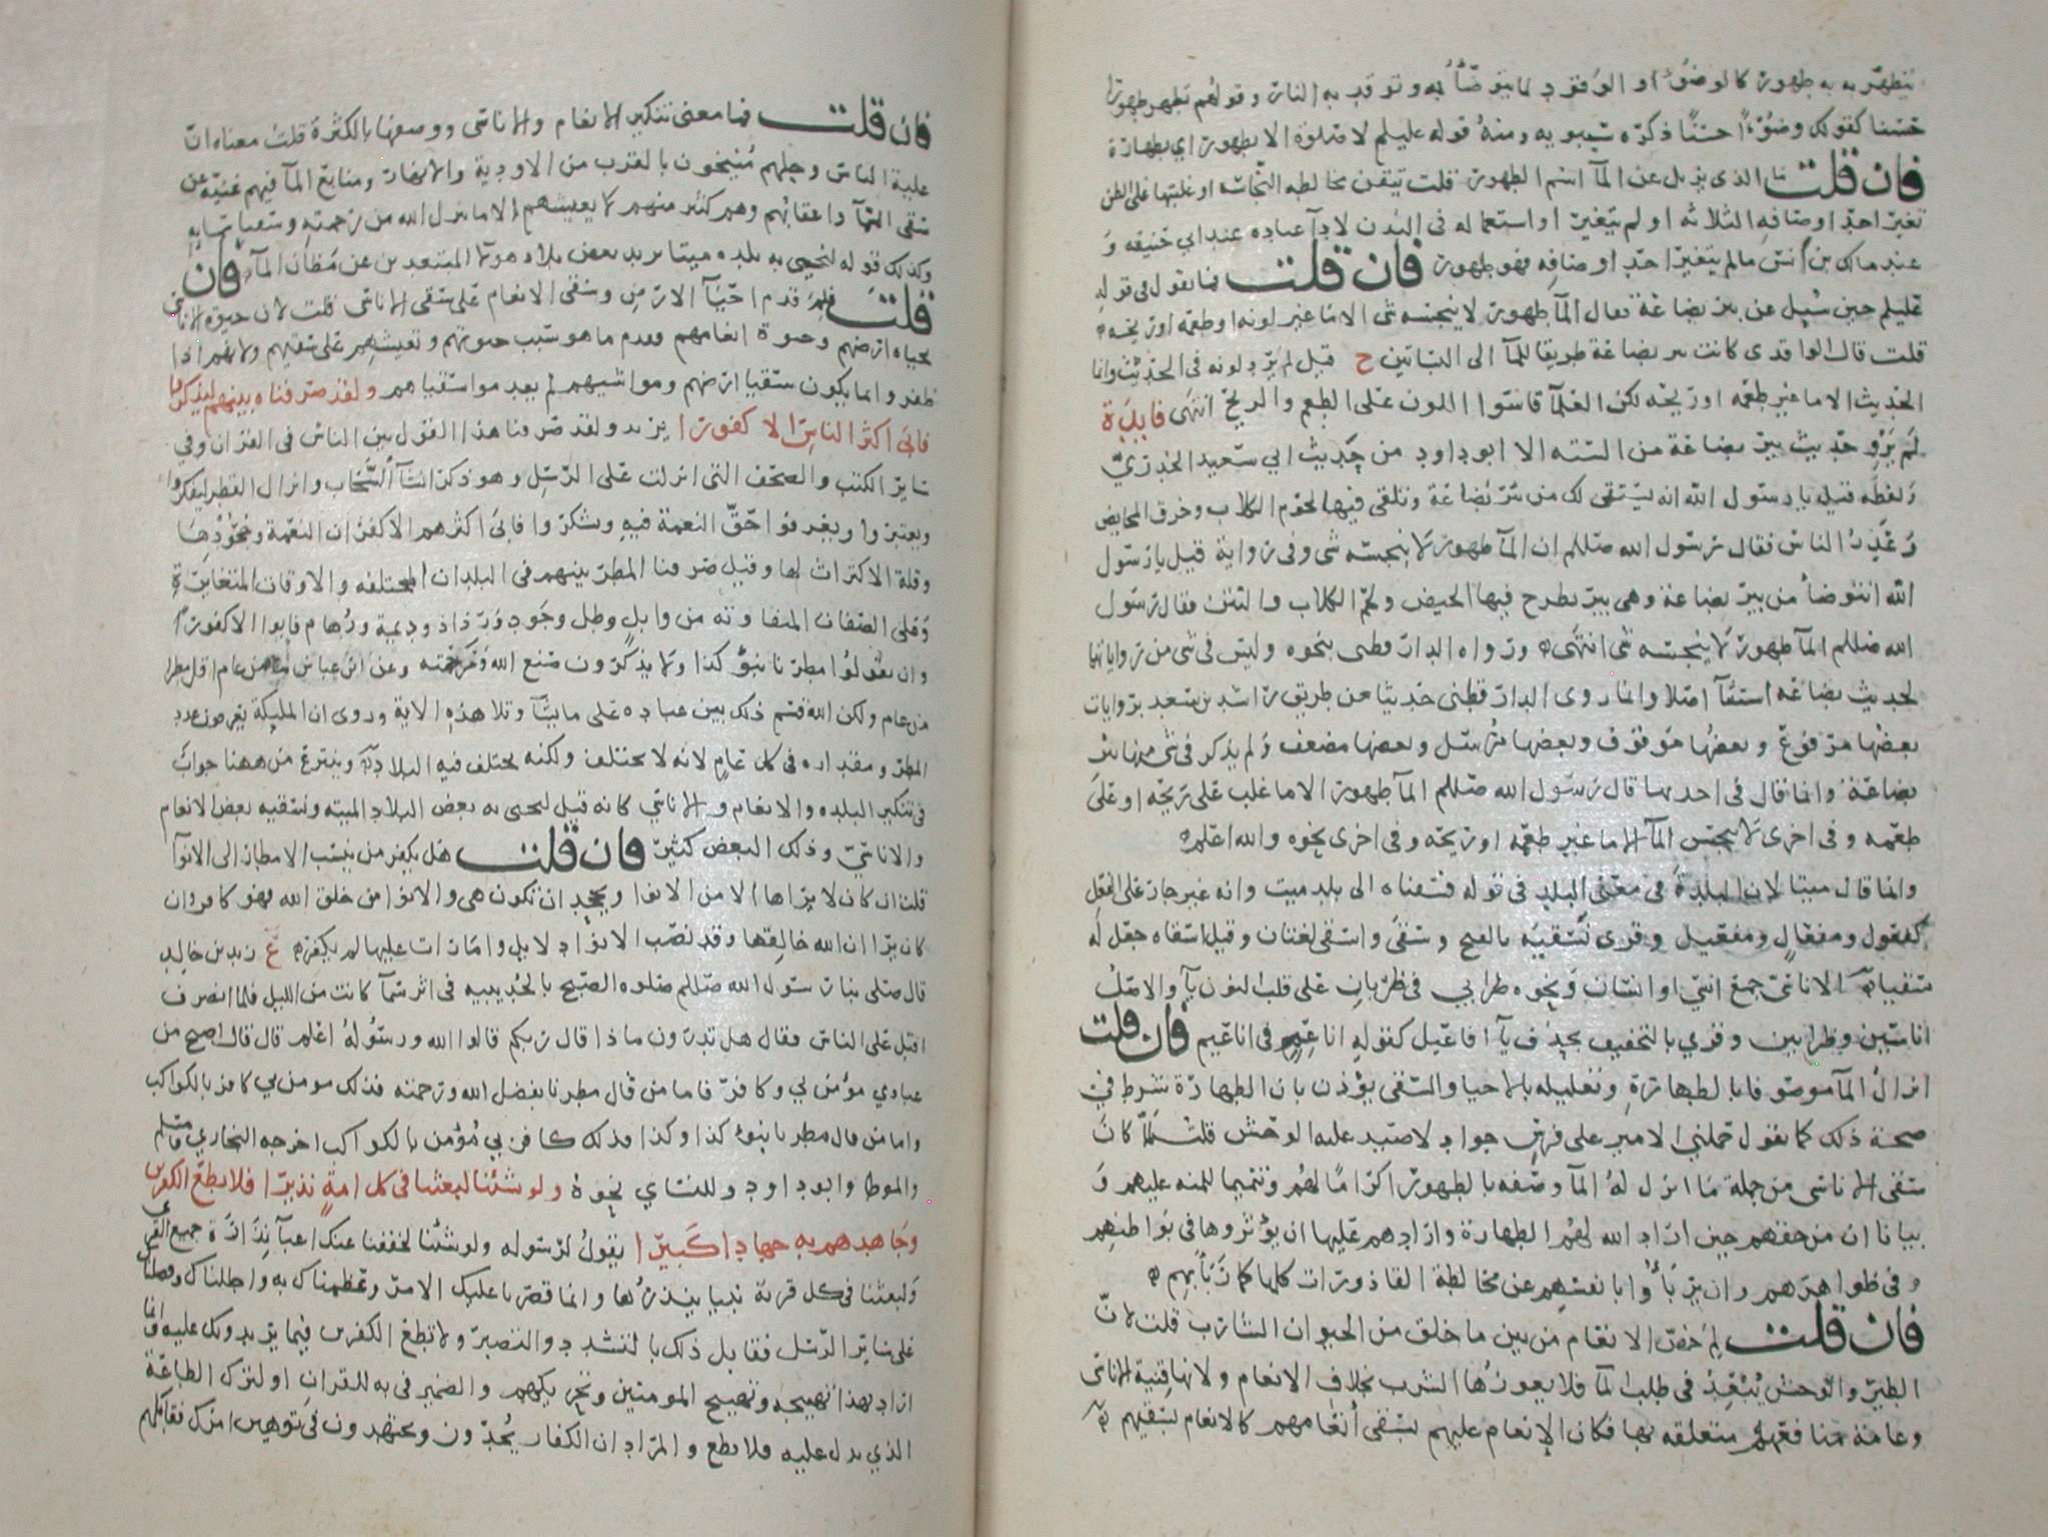 يتطهر به طهور كالوضوء او الوقود لما يتوضأ به وتوقد به النار وقولهم تطهر طهورا
حسنا كقولك وضوءا حسنا ذكره سيبويه ومنه قوله عليلم لا صلوة الا بطهور اي بطهارة
فان قلت ما الذي يزيل عن المآ اسم الطهور قلت تيقن مخالطه النجاسه او غلبتها على الظن
تغير احد اوصافه الثلاثه او لم يتغير او استعماله في البدن لادآ عباده عند ابي حنيفه و
عند مالك بن انس مالم يتغير احد اوصافه فهو طهور فان قلت فما يقول في قوله
عليلم حين سيل عن بير بضاعة فقال المآ طهور لا ينجسه شى الا ما غير لونه او طعمه او ريحه
قلت قال الواقدى كانت بير بضاعة طريقا للمآ الى البساتين ح قيل لم يرد لونه في الحديث وانما
الحديث الا ما غير طعمه او ريحه لكن العلمآ قاسوا اللون على الطعم والريح انتهى فايدة
لم يرو حديث بير بضاعة من السته الا ابو داود من حديث ابي سعيد الخدري
ولفظه قيل يا رسول الله انه يستقى لك من بير بضاعة وتلقى فيها لحوم الكلاب وخرق المحايض
وعذر الناس فقال رسول الله صللم ان المآ طهور لا ينجسه شى وفى رواية قيل يا رسول
الله انتوضأ من بير بضاعة وهى بير يطرح فيها الحيض ولحم الكلاب والنتن فقال رسول
الله صللم المآ طهور لا ينجسه شى انتهى ورواه الدارقطنى بنحوه وليس فى شى من رواياتها
لحديث بضاعه استثنآ اصلا وانما روى الدارقطنى حديثا من طريق راشد بن سعد بروايات
بعضها مرفوع وبعضها موقوف وبعضها مرسل وبعضها مضعف ولم يذكر فى شى منها بير
بضاعة وانما قال في احديها قال رسول الله صللم المآ طهور الا ما غلب على ريحه او على
طعمه وفى اخرى لا ينجس المآ الا ما غير طعمه او ريحه وفى اخرى نحوه والله اعلم
وانما قال ميتا لان البلدة في معنى البلد في قوله فسقناه الى بلد ميت وانه غير جار على الفعل
كفعول ومفعال ومفعيل وقرى نسقيه بالفتح وسقى واسقى لغتان وقيل اسقاه جعل له
سقيا الاناسى جمع انسي او انسان ونحوه ظرابي في ظربان على قلب النون يآ والاصل
اناسين وظرابين وقري بالتخفيف بحذف يآ افاعيل كقوله اناعم في اناعيم فان قلت
انزال المآ موصوفا بالطهارة وتعليله بالاحيا والسقى يؤذن بان الطهارة شرط في
صحة ذلك كما تقول حملني الامير على فرس جواد لاصيد عليه الوحش قلت لما كان
سقى الاناسى من جملة ما انزل له المآ وصفه بالطهور اكراما لهم وتتميما للمنه عليهم و
بيانا ان من حقهم حين اراد الله لهم الطهارة وارادهم عليها ان يؤثروها في بواطنهم
وفى ظواهرهم وان يربأوا بانفسهم عن مخالطة القاذورات كلها كما ربأ بهم
فان قلت لم خص الانعام من بين ما خلق من الحيوان الشارب قلت لان
الطير والوحش تبعد في طلب المآ فلا يعوزها الشرب بخلاف الانعام ولانها قنية الاناسى
وعامة منافعهم متعلقه بها فكان الانعام عليهم بسقى انعامهم كالانعام بسقيهم
فان قلت فما معنى تنكير الانعام والاناسى ووصفها بالكثرة قلت معناه ان
علية الناس وجلهم منيخون بالقرب من الاودية والانهار ومنابع المآ فيهم غنية عن
سقى السمآ واعقابهم وهم كثير منهم لا يعيشهم الا ما ينزل الله من رحمته وسقيا سمايه
وكذلك قوله لنحيي به بلده ميتا يريد بعض بلاد هولا المبتعدين عن مظان المآ فان
قلت فلم قدم احيآ الارض وسقى الانعام على سقى الاناسى قلت لان حيوة الاناسى
بحياه ارضهم وحيوة انعامهم فقدم ما هو سبب حيوتهم وتعيشهم على سقيهم ولانهم اذا
ظفروا بما يكون سقيا ارضهم ومواشيهم لم يعدموا سقياهم ولقد صرفناه بينهم ليذكروا
فابى اكثر الناس الا كفورا يريد ولقد صرفنا هذا القول بين الناس فى القران وفي
ساير الكتب والصحف التى انزلت على الرسل وهو ذكر انشآ السحاب وانزال القطر ليفكروا
ويعتبروا ويعرفوا حق النعمة فيه ويشكروا فابى اكثرهم الا كفران النعمة وجحودها
وقلة الاكتراث لها وقيل صرفنا المطر بينهم فى البلدان المختلفه والاوقات المتغايرة
وعلى الصفات المتفاوته من وابل وطل وجود ورذاذ وديمة ورهام فابوا الا كفورا
وان يقولوا مطرنا بنؤ كذا ولا يذكرون صنع الله ورحمته وعن ابن عباس ما من عام اقل مطرا
من عام ولكن الله قسم ذلك بين عباده على ما يشآ وتلا هذه الاية وروى ان المليكة يعرفون عدد
المطر ومقداره فى كل عام لانه لا يختلف ولكنه يختلف فيه البلاد وينتزع من ههنا جواب
فى تنكير البلده والانعام والاناسي كانه قيل لنحيي به بعض البلاد الميته ونسقيه بعض الانعام
والاناسي وذلك البعض كثير فان قلت هل يكفر من ينسب الامطار الى الانوآ
قلت ان كان لا يراها الا من الانوا ويجحد ان تكون هى والانوا من خلق الله فهو كافر وان
كان يرا ان الله خالقها وقد نصب الانوا دلايل وامارات عليها لم يكفر زيد بن خالد
قال صلى بنا رسول الله صللم صلوه الصبح بالحديبيه فى اثر سمآ كانت من الليل فلما انصرف
اقبل على الناس فقال هل تدرون ماذا قال ربكم قالوا الله ورسوله اعلم قال قال اصبح من
عبادي مؤمن بي وكافر فاما من قال مطرنا بفضل الله ورحمته فذلك مومن بي كافر بالكواكب
واما من قال مطرنا بنوء كذا وكذا فذلك كافر بي مؤمن بالكواكب اخرجه البخاري ومسلم
والموطا وابو داود وللنساي نحوه ولو شئنا لبعثنا فى كل امة نذيرا فلا تطع الكفرين
وجاهدهم به جهادا كبيرا يقول لرسوله ولو شئنا لخففنا عنك اعبآ نذارة جميع القرى
ولبعثنا فى كل قرية نبيا ينذرها وانما قصرنا عليك الامر وعظمناك به واجللناك وفضلناك
على ساير الرسل فقابل ذلك بالتشدد والتصبر ولا تطع الكفرين فيما يريدونك عليه وانما
اراد بهذا تهييجه وتهييج المومنين وتحريكهم والضمير فى به للقران او لترك الطاعة
الذي يدل عليه فلا تطع والمراد ان الكفار يجدون ويجتهدون في توهين امرك فقابلهم